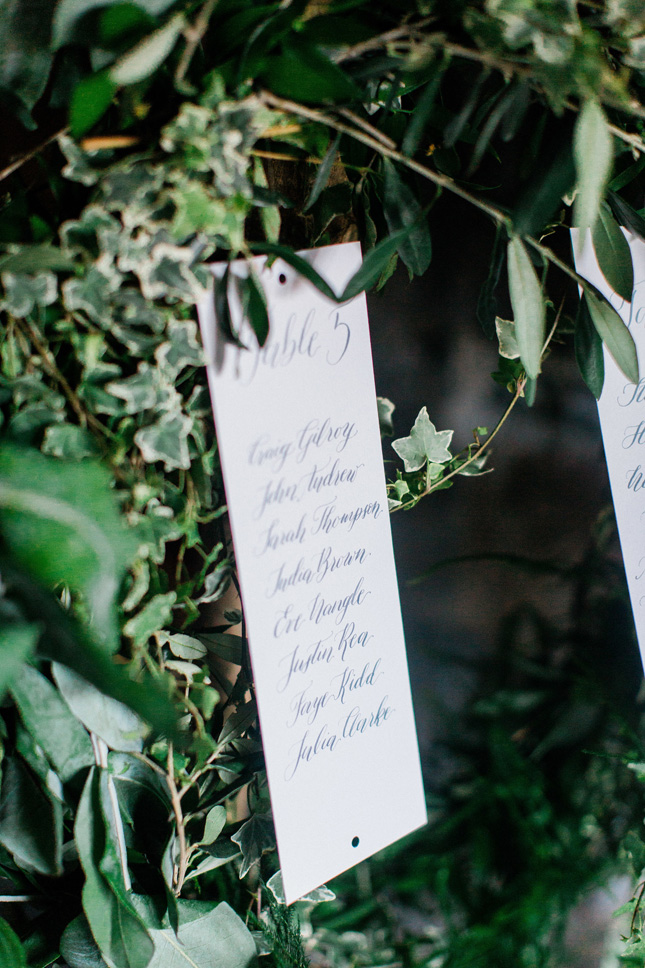 Table 5
Craig Gilroy
John Andrew
Sarah Thompson
India Brown
Eve Nangle
Justin Rea
Faye Kidd
Julia Clarke